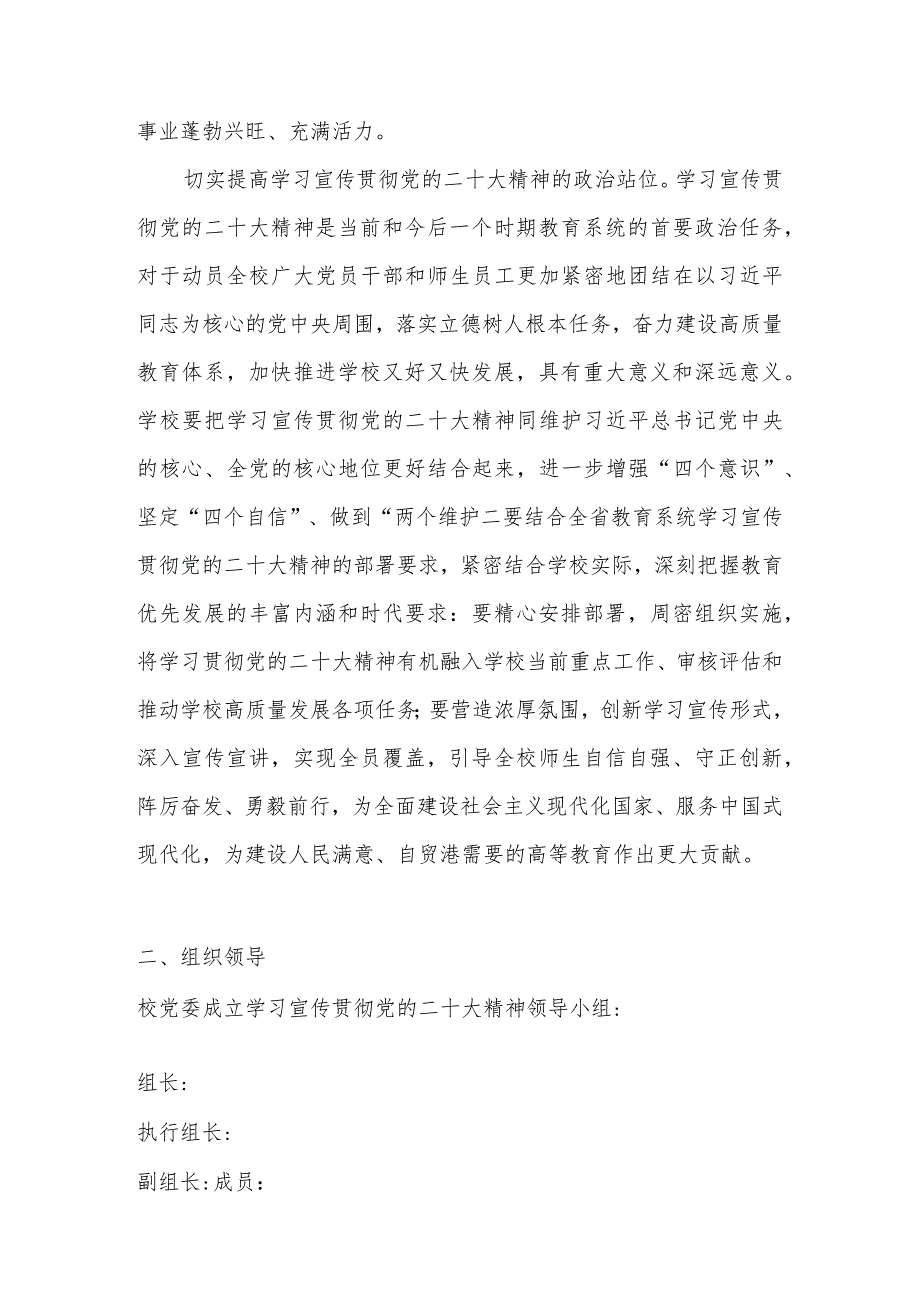 事业蓬勃兴旺、充满活力。
切实提高学习宣传贯彻党的二十大精神的政治站位。学习宣传贯
彻党的二十大精神是当前和今后一个时期教育系统的首要政治任务，
对于动员全校广大党员干部和师生员工更加紧密地团结在以习近平
同志为核心的党中央周围，落实立德树人根本任务，奋力建设高质量
教育体系，加快推进学校又好又快发展，具有重大意义和深远意义。
学校要把学习宣传贯彻党的二十大精神同维护习近平总书记党中央
的核心、全党的核心地位更好结合起来，进一步增强“四个意识”、
坚定“四个自信”、做到“两个维护二要结合全省教育系统学习宣传
贯彻党的二十大精神的部署要求，紧密结合学校实际，深刻把握教育
优先发展的丰富内涵和时代要求：要精心安排部署，周密组织实施，
将学习贯彻党的二十大精神有机融入学校当前重点工作、审核评估和
推动学校高质量发展各项任务；要营造浓厚氛围，创新学习宣传形式，
深入宣传宣讲，实现全员覆盖，引导全校师生自信自强、守正创新，
阵厉奋发、勇毅前行，为全面建设社会主义现代化国家、服务中国式
现代化，为建设人民满意、自贸港需要的高等教育作出更大贡献。
二、组织领导
校党委成立学习宣传贯彻党的二十大精神领导小组：
组长：
执行组长：
副组长：成员：